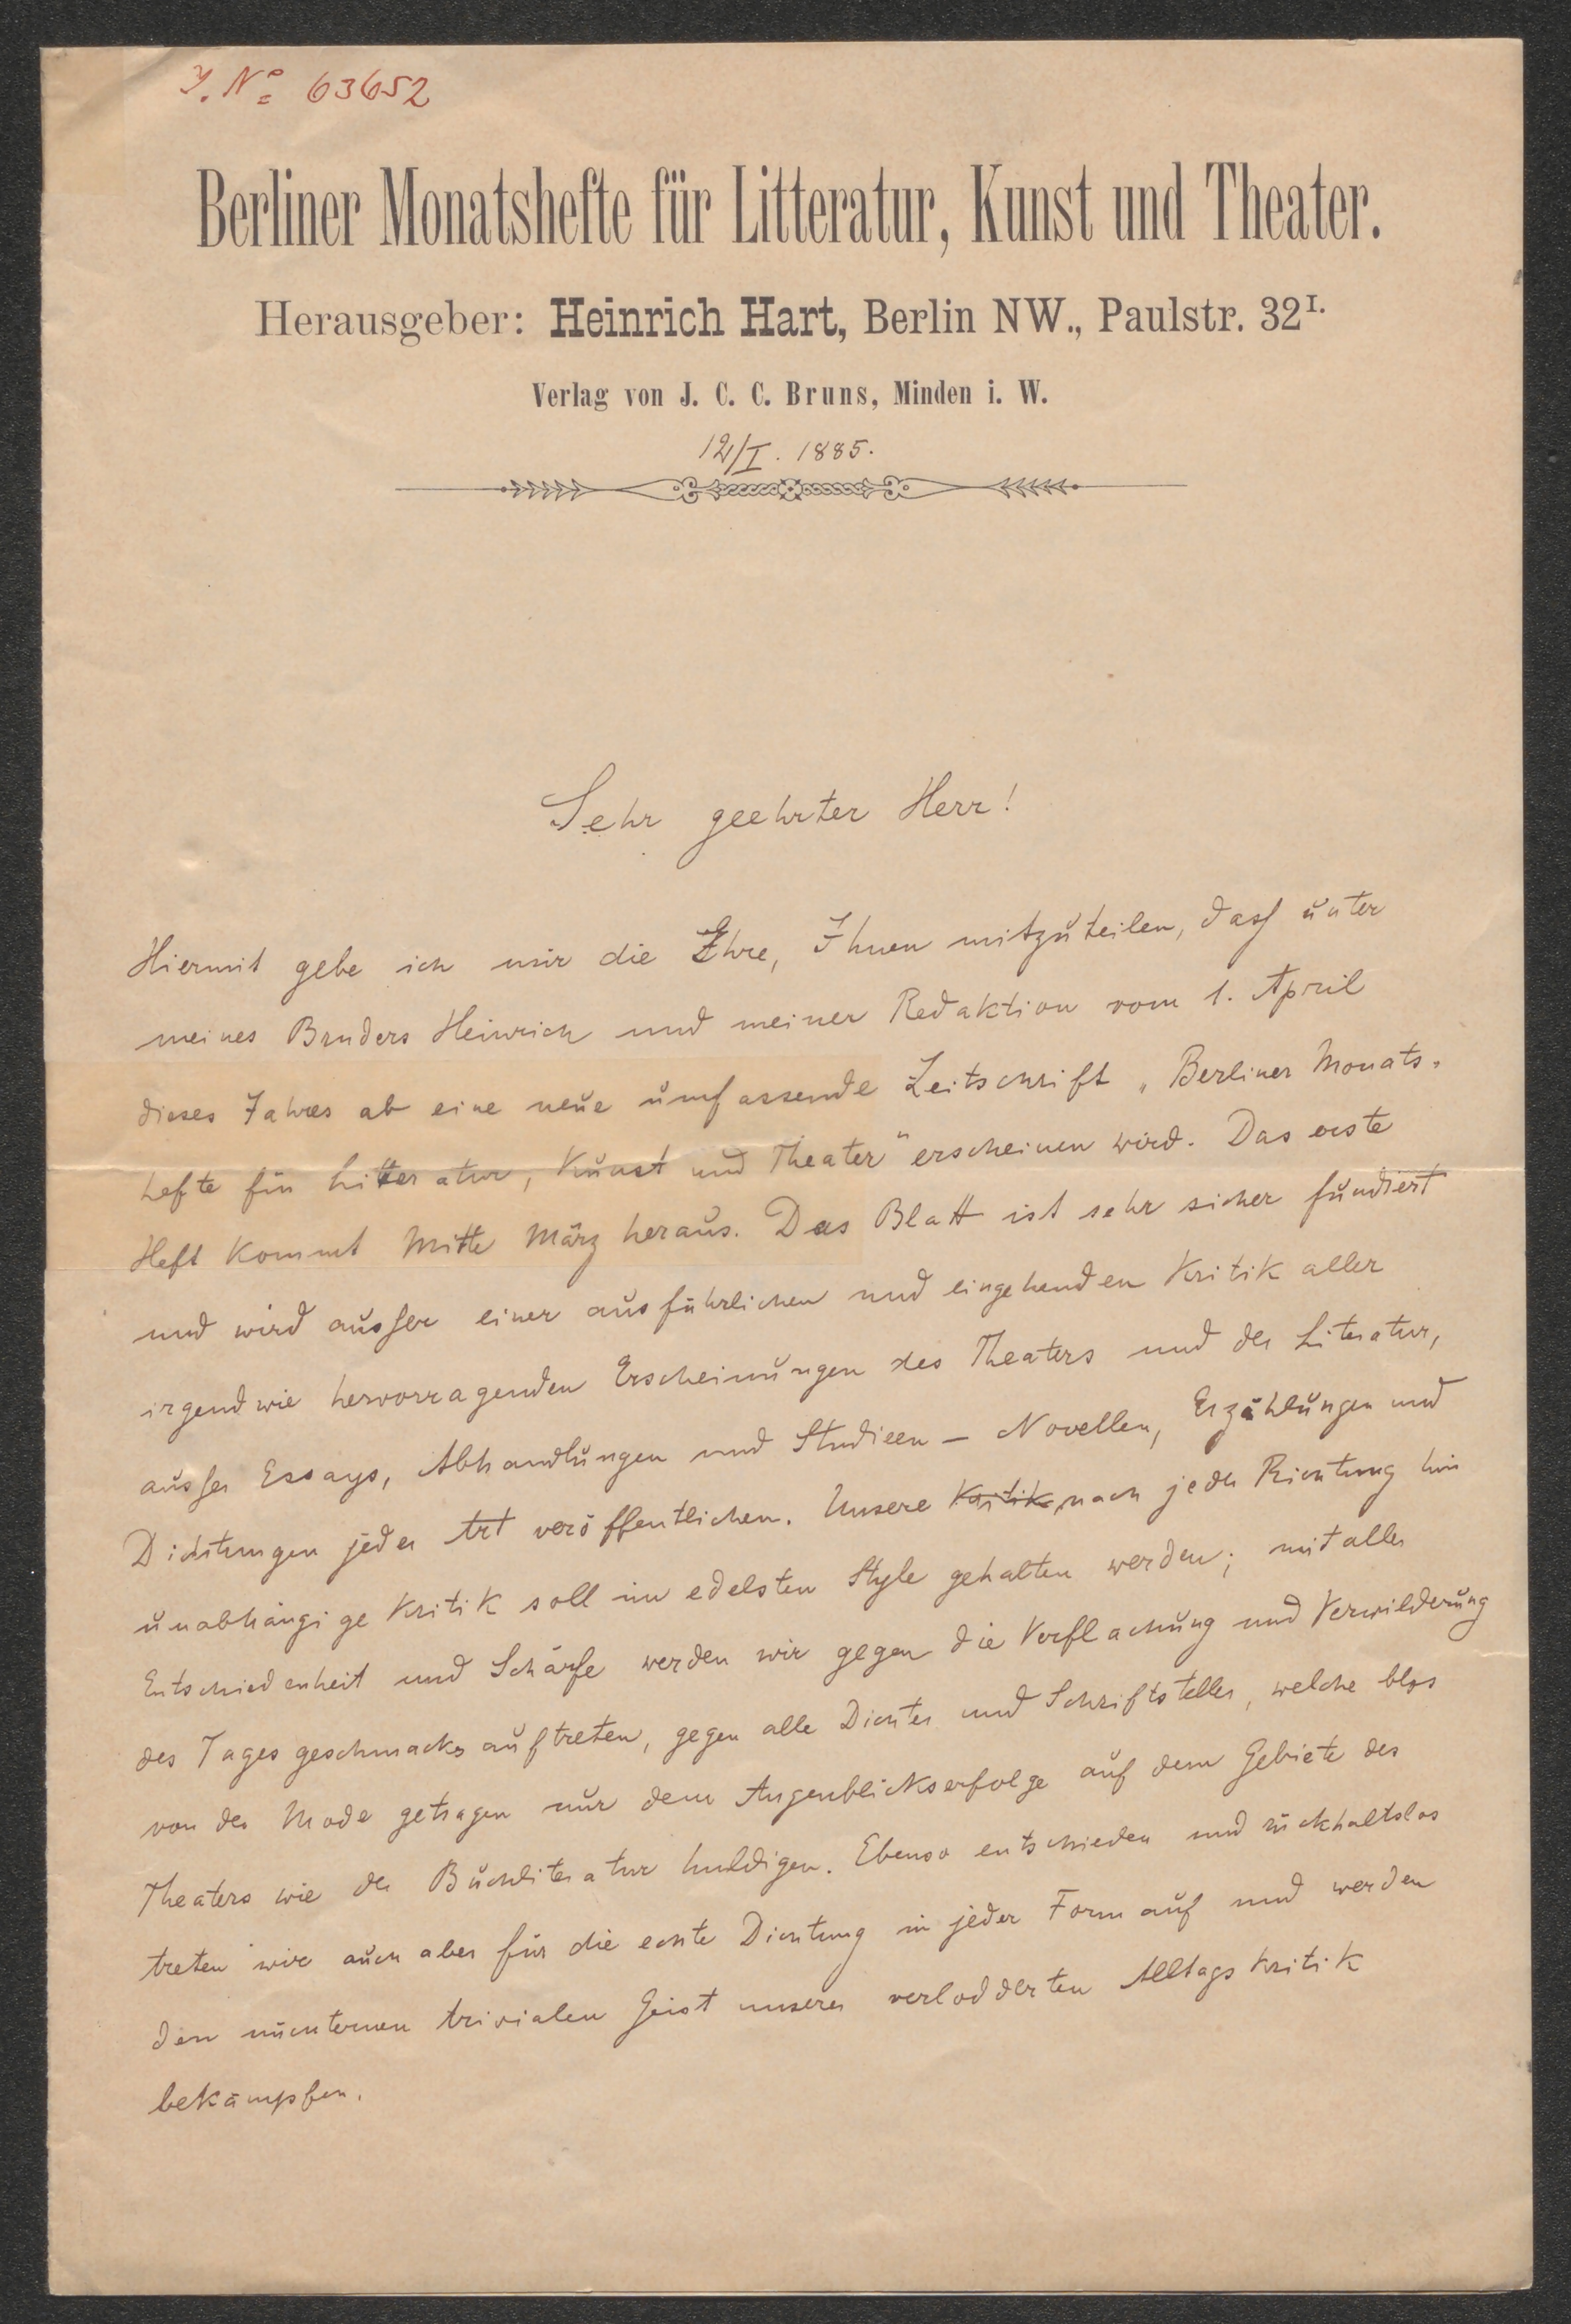 J. No 63652
Berliner Monatshefte für Litteratur, Kunst und Theater.
Herausgeber: Heinrich Hart, Berlin NW., Paulstr. 32I.
Verlag von J. C. C. Bruns, Minden i. W.
12/I. 1885.
Sehr geehrter Herr!
Hiermit gebe ich mir die Ehre, Ihnen mitzuteilen, dass unter
meines Bruders Heinrich und meiner Redaktion vom 1. April
dieses Jahres ab eine neue umfassende Zeitschrift „Berliner Monats-
hefte für Litteratur, Kunst und Theater" erscheinen wird. Das erste
Heft kommt Mitte März heraus. Das Blatt ist sehr sicher fundiert
und wird ausser einer ausführlichen und eingehenden Kritik aller
irgendwie hervorragenden Erscheinungen des Theaters und der Literatur,
ausser Essays, Abhandlungen und Studieen – Novellen, Erzählungen und
Dichtungen jeder Art veröffentlichen. Unsere Kritik, nach jeder Richtung hin
unabhängige Kritik soll im edelsten Style gehalten werden; mit aller
Entschiedenheit und Schärfe werden wir gegen die Verflachung und Verwilderung
des Tagesgeschmacks auftreten, gegen alle Dichter und Schriftsteller, welche blos
von der Mode getragen nur dem Augenblickserfolge auf dem Gebiete des
Theaters wie der Buchliteratur huldigen. Ebenso entschieden und rückhaltslos
treten wir auch aber für die echte Dichtung in jeder Form auf und werden
den nüchternen trivialen Geist unserer verlodderten Alltagskritik
bekämpfen.